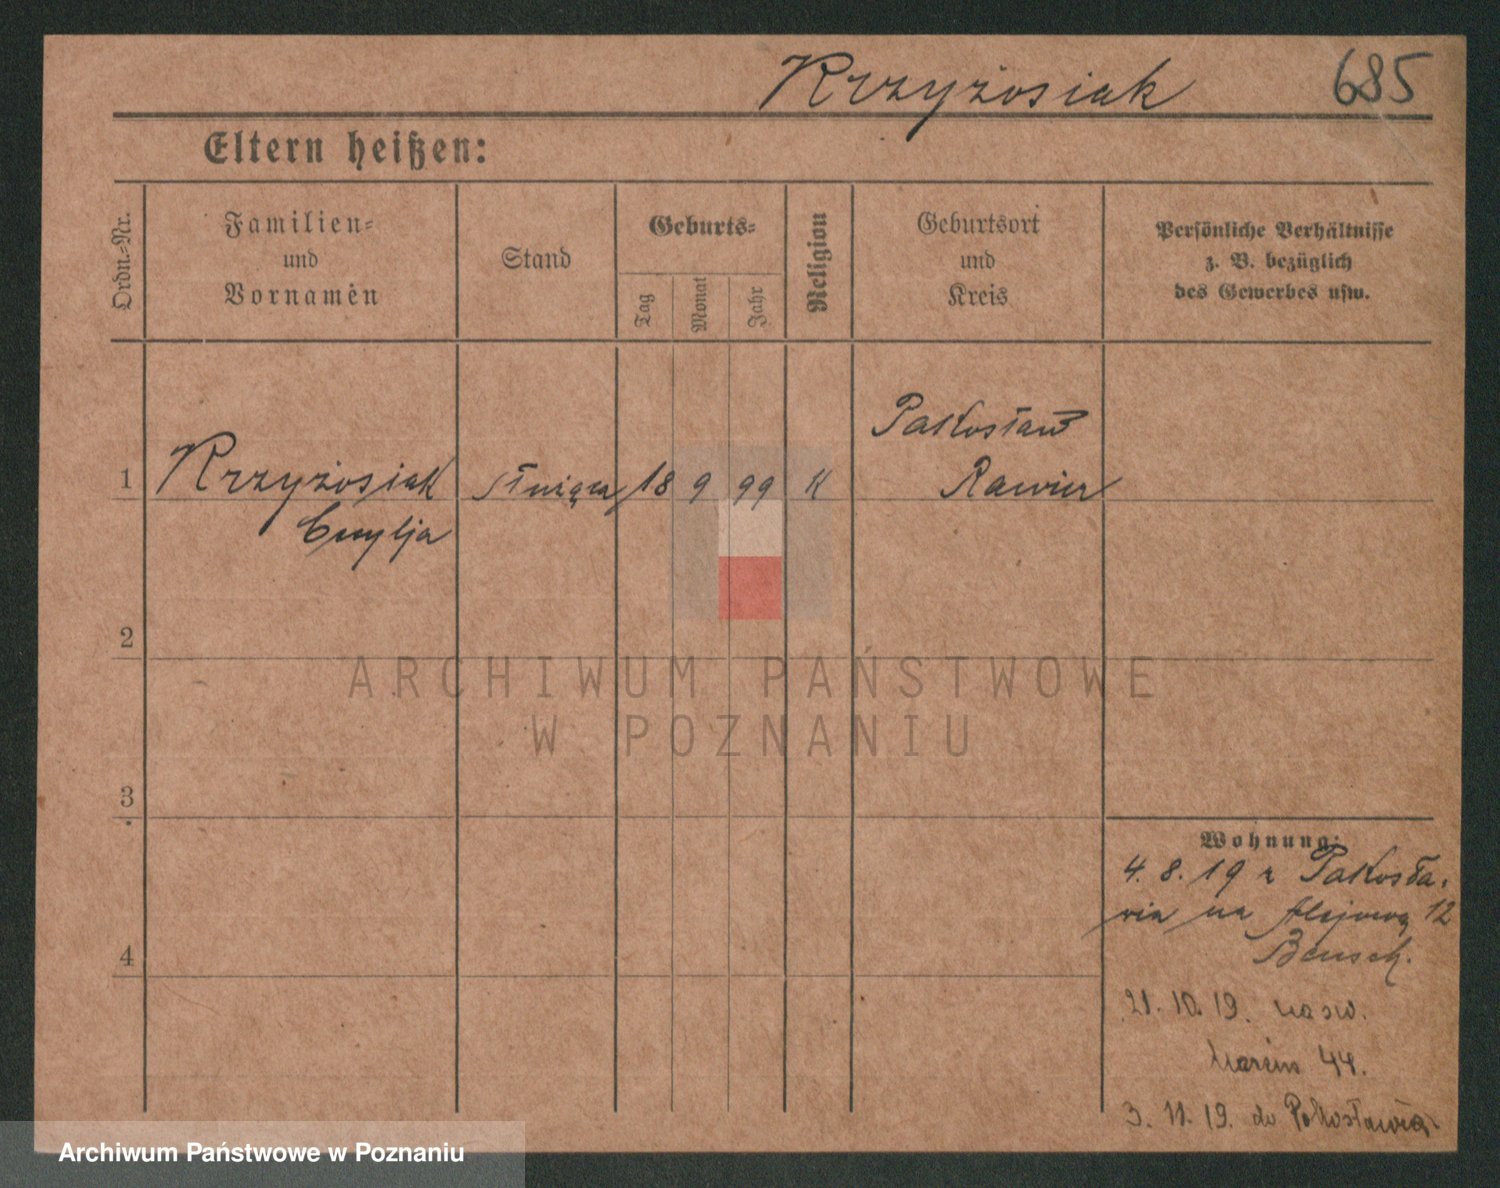 Krzyżosiak 685
Eltern heißen:
Ordn.-Nr.
Familien-
und
Vornamen
Stand
Geburts-
Tag
Monat
Jahr
Religion
Geburtsort
und
Kreis
Persönliche Verhältnisse
z. B. bezüglich
des Gewerbes usw.
Pakosław
1 Krzyżosiak służąca 18 9 99 K Rawicz
Cecylja
2
ARCHIWUM PAŃSTWOWE
W POZNANIU
3
Wohnung:
4. 8. 19 z Pakosła-
wia na 12
4
21. 10. 19. na św.
Marcin 44.
3. 11. 19. do Pakosławia
Archiwum Państwowe w Poznaniu